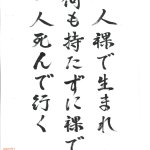 人裸で生まれ
何も持たずに裸で
人死んで行く